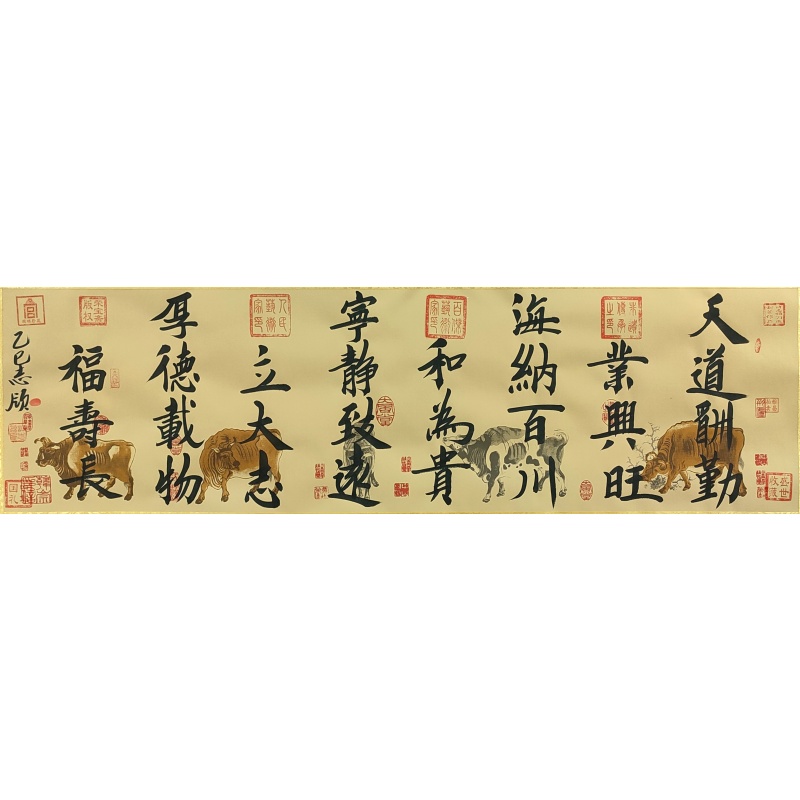 天道酬勤
業興旺
海納百川
和為貴
寧靜致遠
立大志
厚德載物
福壽長
乙巳志頎